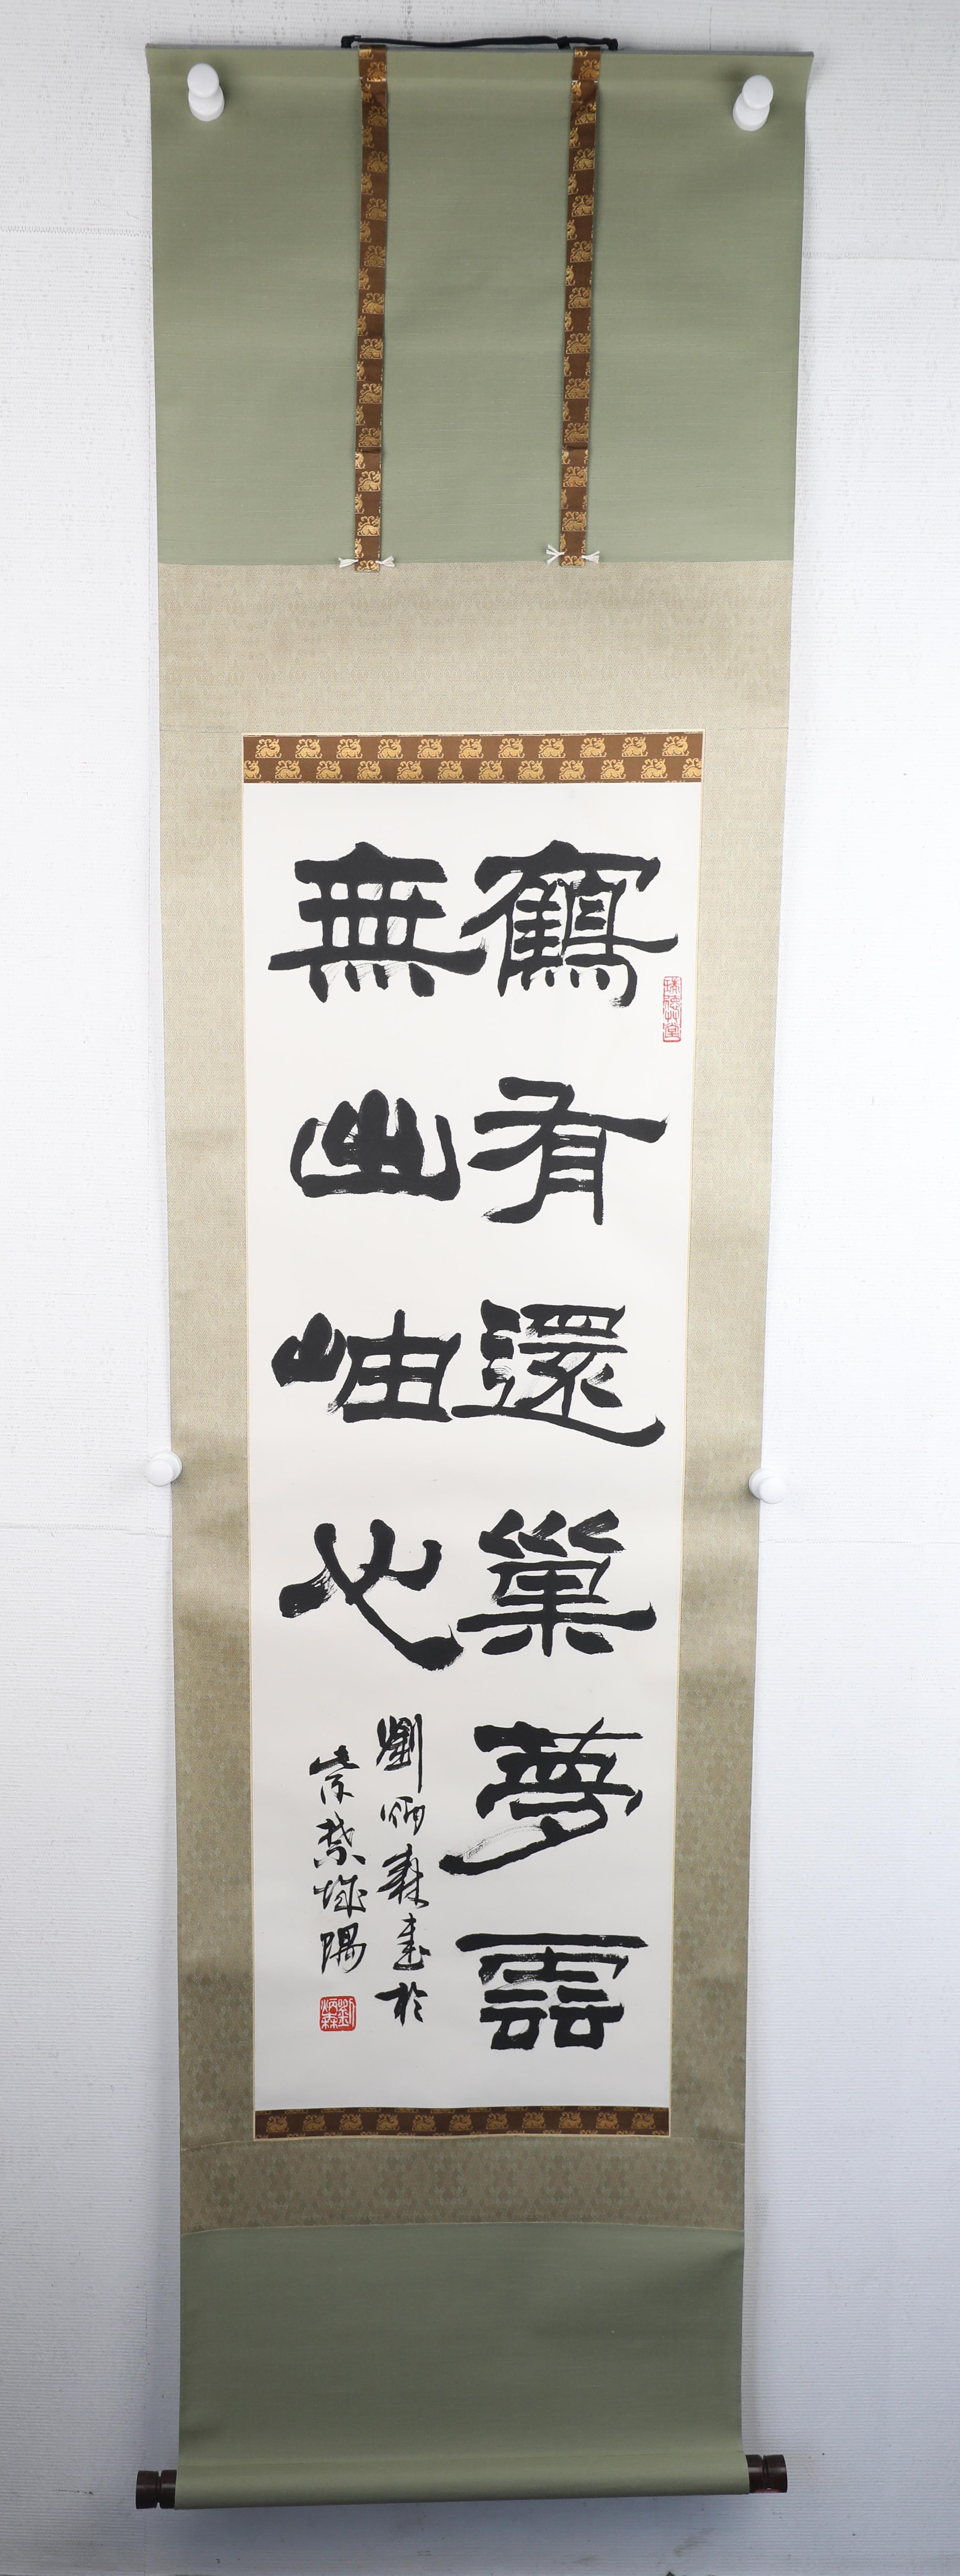 鶴有還巢夢雲
無出岫心
劉炳森書於
京華城隅
劉炳森